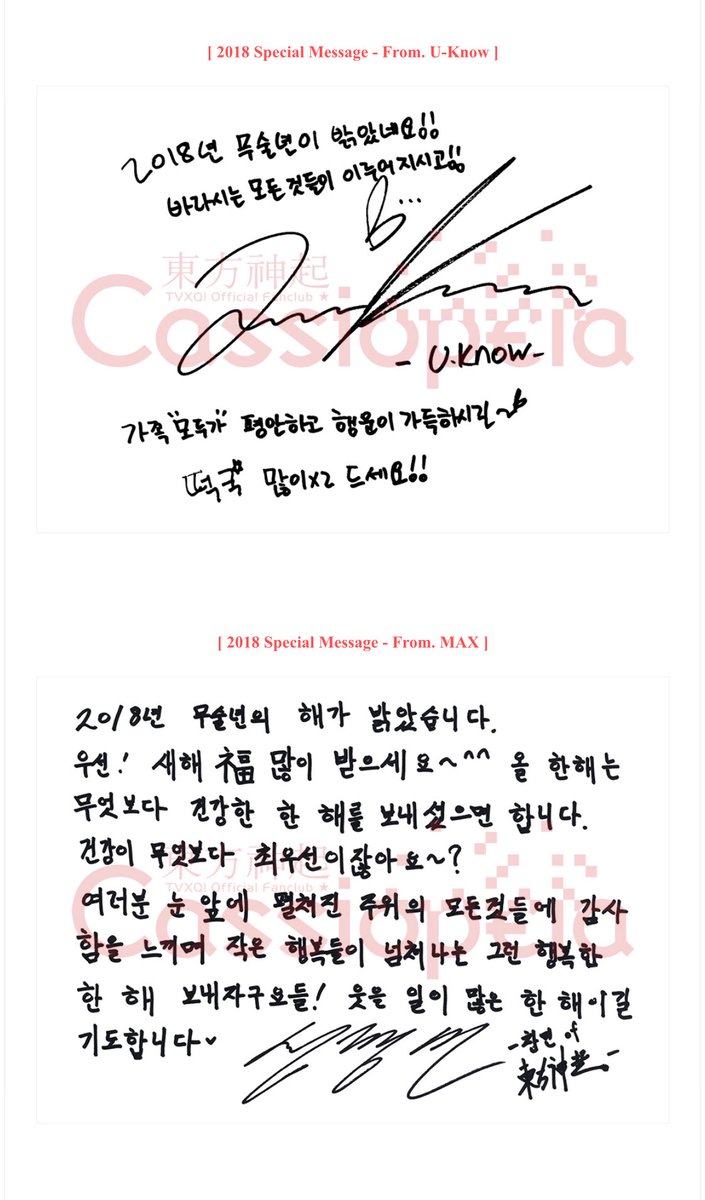 [ 2018 Special Message - From. U-Know ]
2018년 무술년이 밝았네요!!
바라시는 모든것들이 이루어지시고!!
東方神起
TVXQ! Official Fanclub ★
Cassiopeia
- U.Know -
가족 "모두가" 평안하고 행운이 가득하시길~
떡국 많이x2 드세요!!
[ 2018 Special Message - From. MAX ]
2018년 무술년의 해가 밝았습니다.
우선! 새해 福 많이 받으세요~^^ 올 한해는
무엇보다 건강한 한 해를 보내셨으면 합니다.
건강이 무엇보다 최우선이잖아요~?
東方神起
TVXQ! Official Fanclub ★
Cassiopeia
여러분 눈 앞에 펼쳐진 주위의 모든것들에 감사
함을 느끼며 작은 행복들이 넘쳐나는 그런 행복한
한 해 보내자구요들! 웃을 일이 많은 한 해이길
기도합니다♥
-창민 of
東方神起-